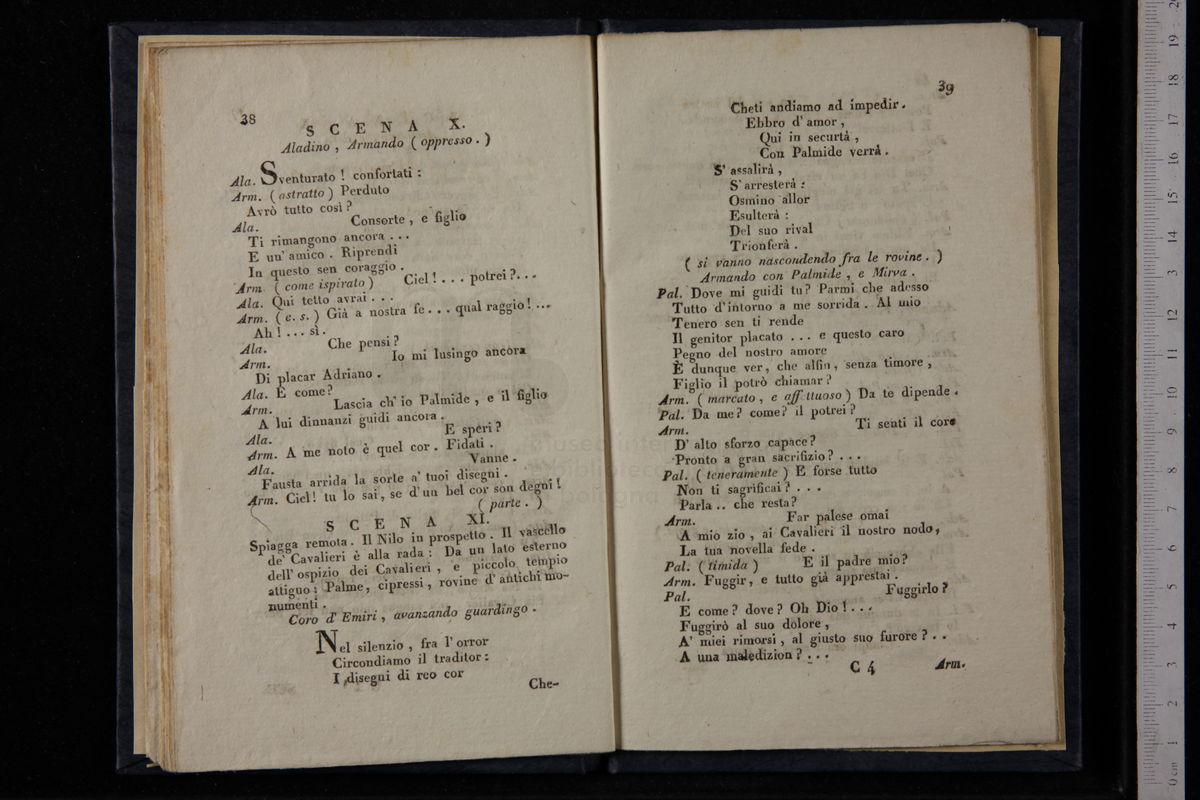 38
SCENA X.
Aladino , Armando ( oppresso . )
Ala. Sventurato ! confortati :
Arm. ( astratto ) Perduto
Avrò tutto così ?
Ala. Consorte , e figlio
Ti rimangono ancora . . .
E un' amico . Riprendi
In questo sen coraggio .
Arm. ( come ispirato ) Ciel ! . . . potrei ? . . .
Ala. Qui tetto avrai . . .
Arm. ( e. s. ) Già a nostra fe . . . qual raggio ! . . .
Ah ! . . . sì .
Ala. Che pensi ?
Arm. Io mi lusingo ancora
Di placar Adriano .
Ala. E come ?
Arm. Lascia ch' io Palmide , e il figlio
A lui dinnanzi guidi ancora .
Ala. E speri ?
Arm. A me noto è quel cor . Fidati .
Ala. Vanne .
Fausta arrida la sorte a' tuoi disegni .
Arm. Ciel ! tu lo sai , se d' un bel cor son degni !
( parte . )
SCENA XI.
Spiagga remota . Il Nilo in prospetto . Il vascello
de' Cavalieri è alla rada : Da un lato esterno
dell' ospizio dei Cavalieri , e piccolo tempio
attiguo : Palme , cipressi , rovine d' antichi mo-
numenti .
Coro d' Emiri , avanzando guardingo .
Nel silenzio , fra l' orror
Circondiamo il traditor :
I disegni di reo cor
Che-
39
Cheti andiamo ad impedir .
Ebbro d' amor ,
Qui in securtà ,
Con Palmide verrà .
S' assalirà ,
S' arresterà :
Osmino allor
Esulterà :
Del suo rival
Trionferà .
( si vanno nascondendo fra le rovine . )
Armando con Palmide , e Mirva .
Pal. Dove mi guidi tu ? Parmi che adesso
Tutto d' intorno a me sorrida . Al mio
Tenero sen ti rende
Il genitor placato . . . e questo caro
Pegno del nostro amore
È dunque ver , che alfin , senza timore ,
Figlio il potrò chiamar ?
Arm. ( marcato , e aff ttuoso ) Da te dipende .
Pal. Da me ? come ? il potrei ?
Arm. Ti senti il core
D' alto sforzo capace ?
Pronto a gran sacrifizio ? . . .
Pal. ( teneramente ) E forse tutto
Non ti sagrificai ? . . .
Parla .. che resta ?
Arm. Far palese omai
A mio zio , ai Cavalieri il nostro nodo ,
La tua novella fede .
Pal. ( timida ) E il padre mio ?
Arm. Fuggir , e tutto già apprestai .
Pal. Fuggirlo ?
E come ? dove ? Oh Dio ! . . .
Fuggirò al suo dolore ,
A' miei rimorsi , al giusto suo furore ? . .
A una maledizion ? . . .
C 4 Arm.